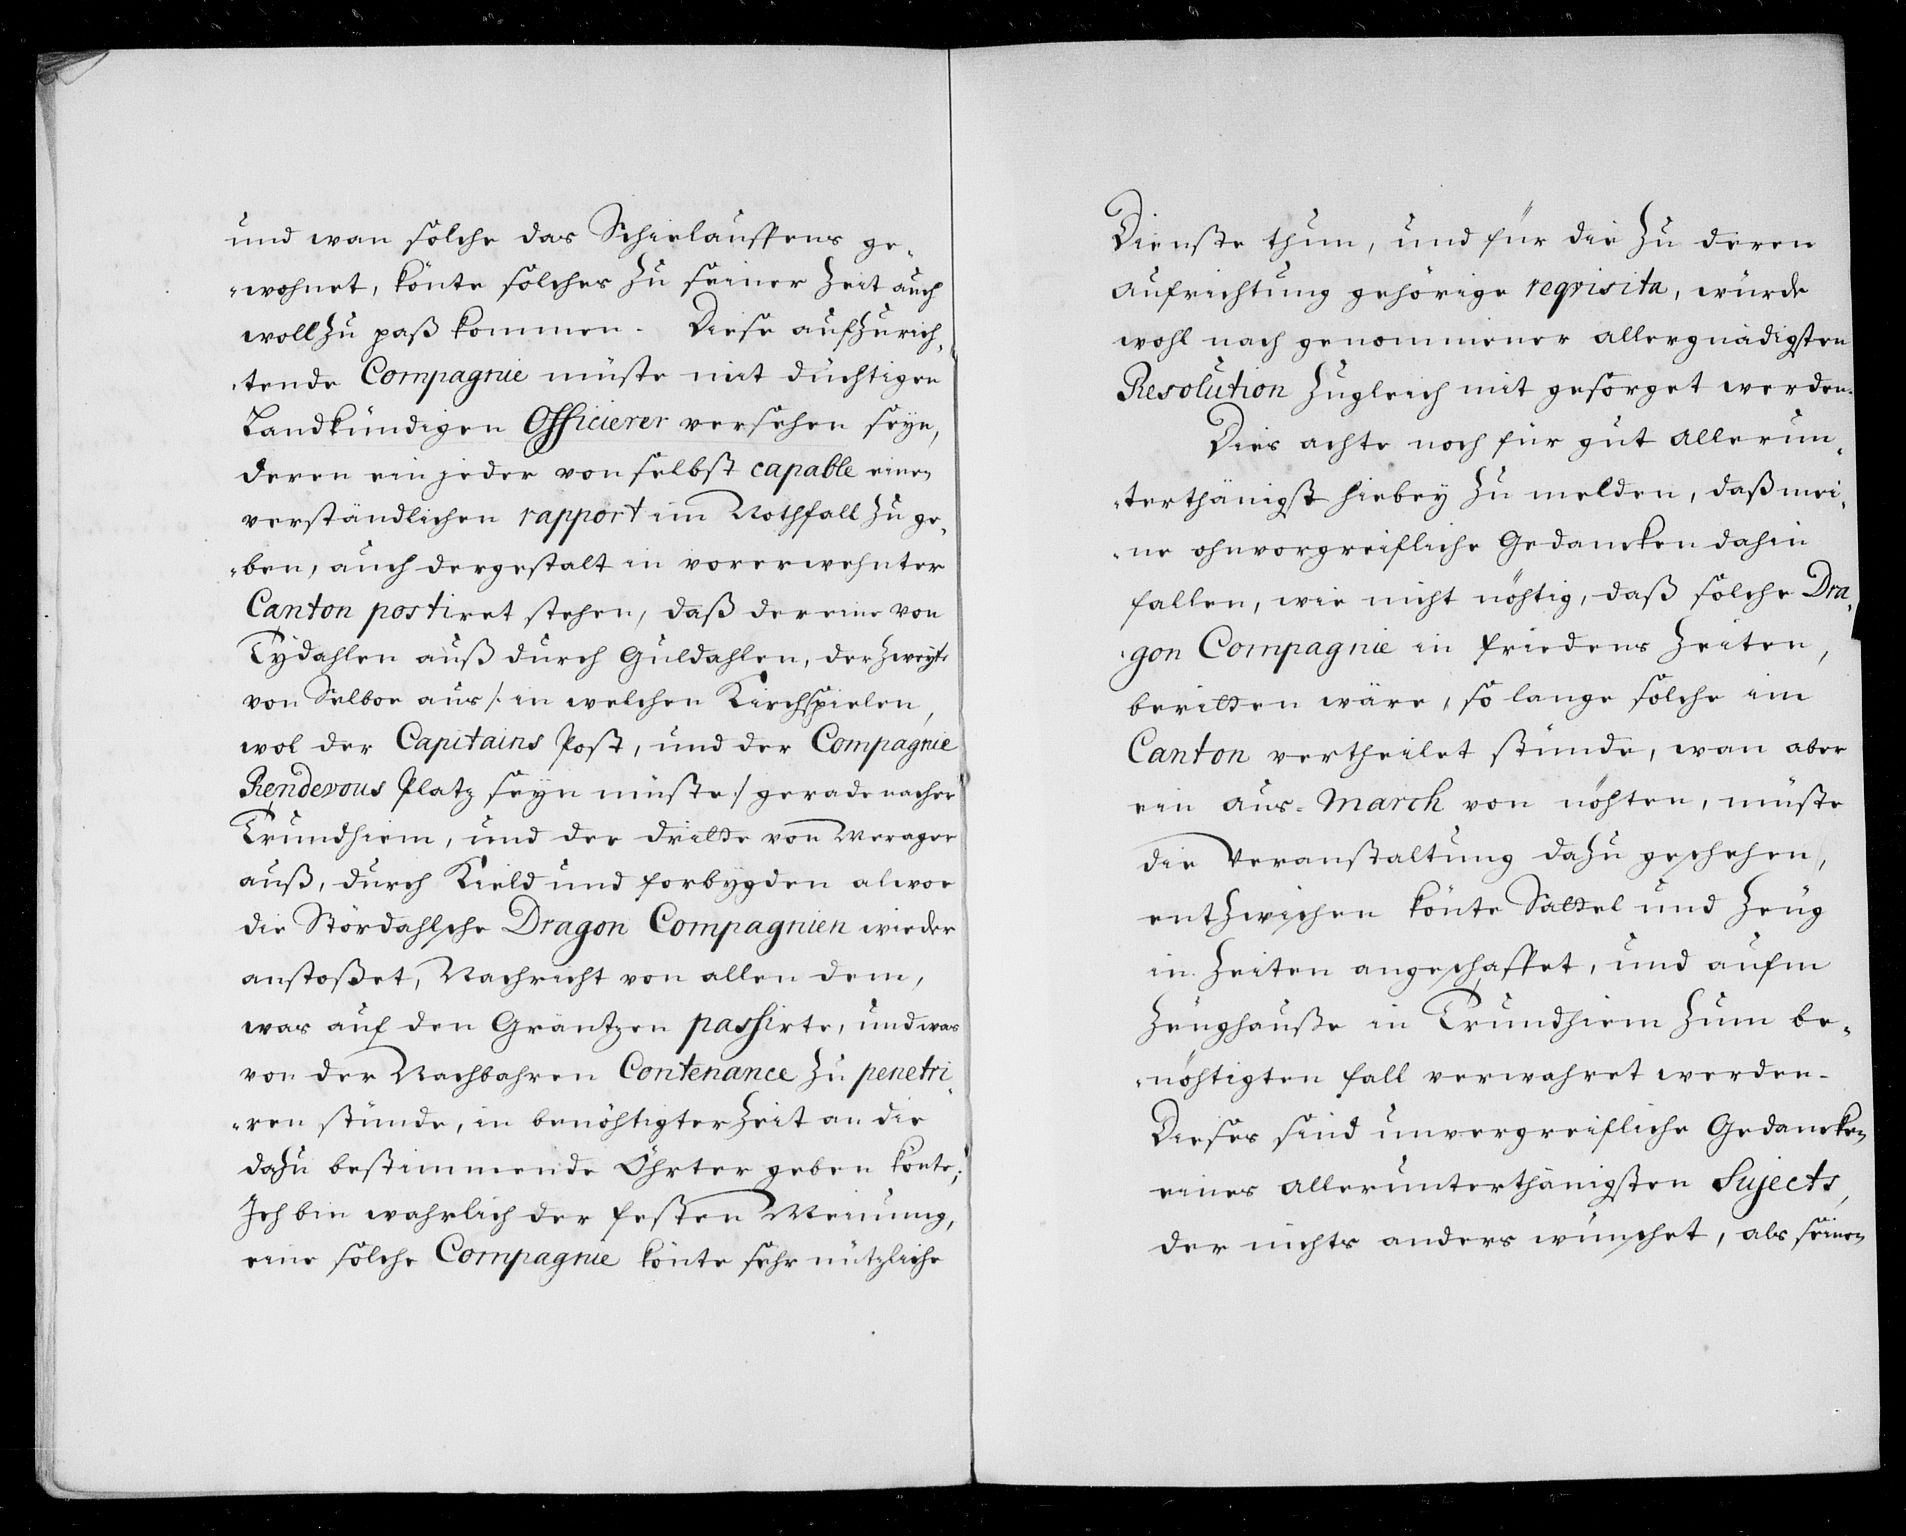 und wan solche das Schielauffens ge„
„wohnet, könte solches zu seiner Zeit auch
woll zu paß kommen. Diese aufzurich„
„tende Compagnie müste mit düchtigen
Landkündigen Officierer versehen seyn,
deren ein jeder von selbst capable einen
verständlichen rapport im Nothfall zu ge„
„ben, auch dergestalt in vorerwehnter
Canton postiret stehen, daß der eine von
Tydahlen auß durch Guldahlen, der zweyte
von Selboe aus /: in welchen Kirchspielen,
wol der Capitains Post, und der Compagnie
Rendevous Platz seyn müste :/ gerade nacher
Trundhiem, und der dritte von Merager
auß, durch Kield und forbygden alwor
die Stördahlsche Dragon Compagnien wieder
anstoßet, Nachricht von allen dem,
was auf den Gräntzen passirte, und was
von der Nachbahren Contenance zu penetri„
„ren stünde, in benöhtigter Zeit an die
dazu bestimmende Öhrter geben könte;
Ich bin wahrlich der festen Meinung,
eine solche Compagnie könte sehr nützliche
Dienste thun, und für die zu deren
aufrichtung gehörige reqvisita, würde
wohl nach genommener allergnädigsten
Resolution zugleich mit gesorget werden.
Dies achte noch für gut allerun„
„terthänigst hiebey zu melden, daß mei„
„ne ohnvorgreifliche Gedancken dahin
fallen, wie nicht nöhtig, daß solche Dra„
„gon Compagnie in friedens Zeiten,
beritten wäre, so lange solche im
Canton vertheilet stünde, wan aber
ein aus-March von nöhten, müste
die Veranstaltung dazu geschehen,
entzwischen könte Sattel und Zeug
in Zeiten angeschaffet, und aufm
Zeughauße in Trundhiem zum be„
„nöhtigten fall verwahret werden.
Dieses sind unvergreifliche Gedancken
eines allerunterthänigsten Sujects,
der nichts anders wünschet, als seinen